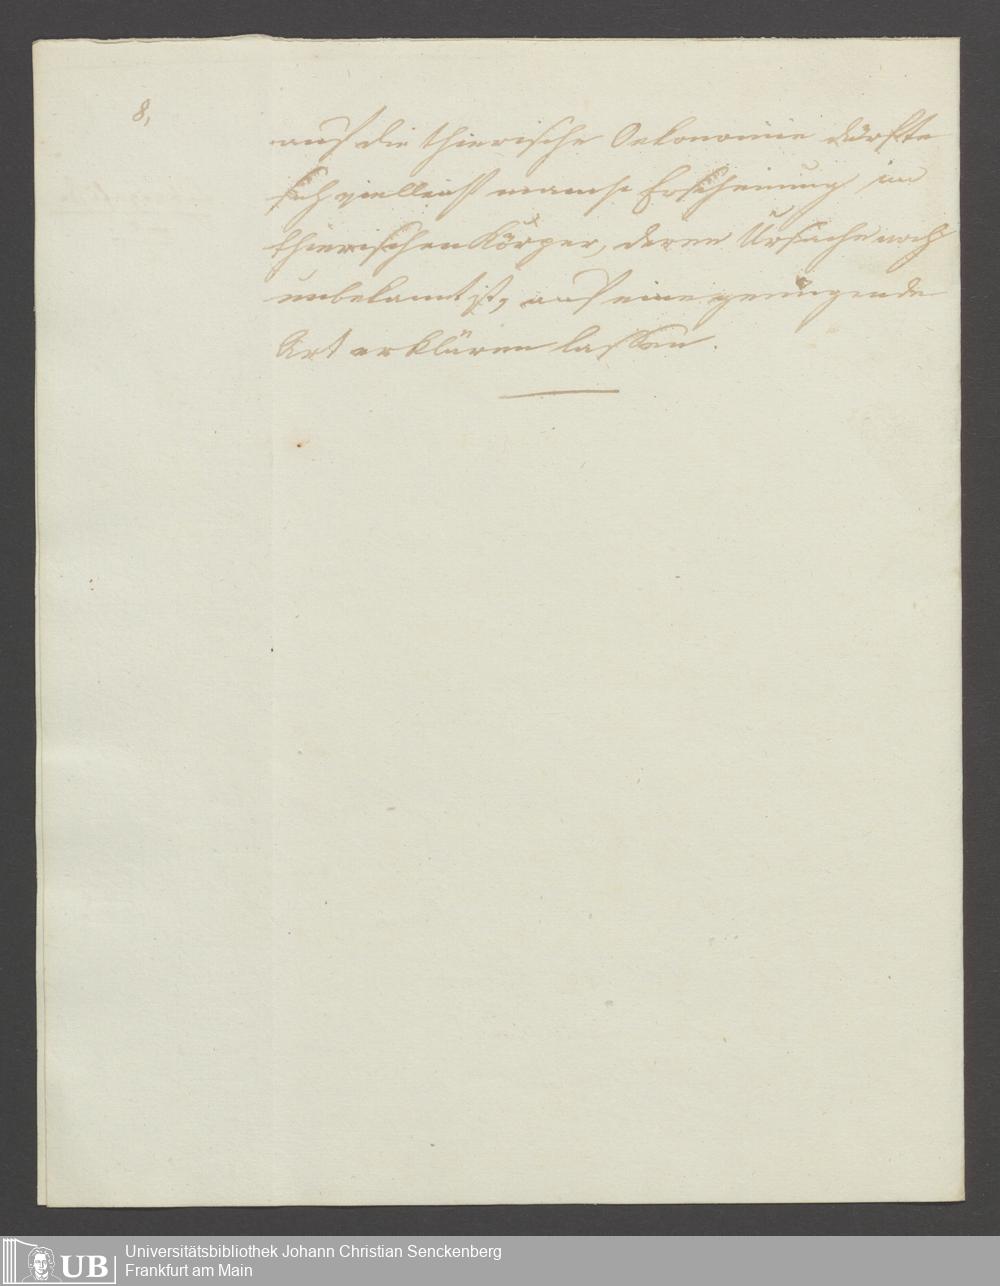 8,
auf die thierische Oekonomie dürfte
sich vielleicht manche Erscheinung im
thierischen Körper, deren Ursache noch
unbekannt ist, auf eine genügende
Art erklären lassen.
UB
Universitätsbibliothek Johann Christian Senckenberg
Frankfurt am Main